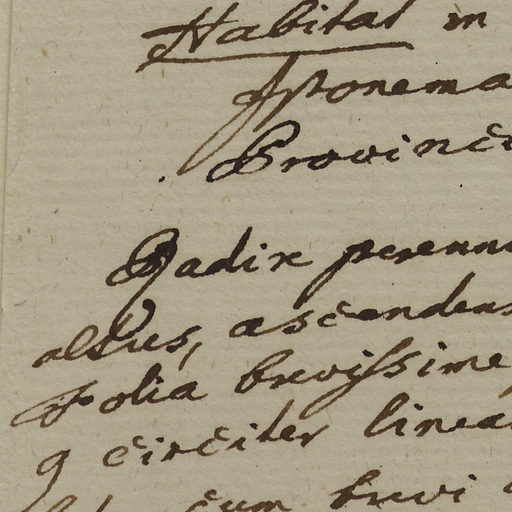 Habitat in
Japonema
Provinci
Radix perenni
altus, ascendens
Folia brevissime
9 circiter linea
cum brevi